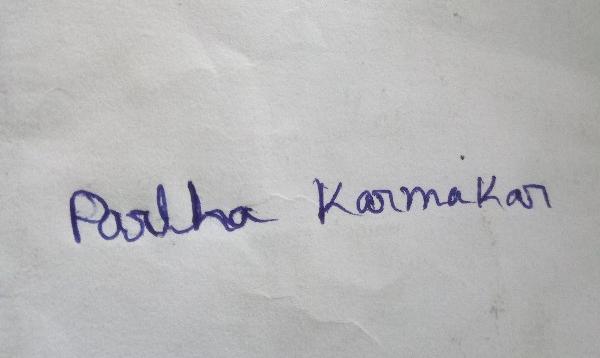 Partha Karmakar